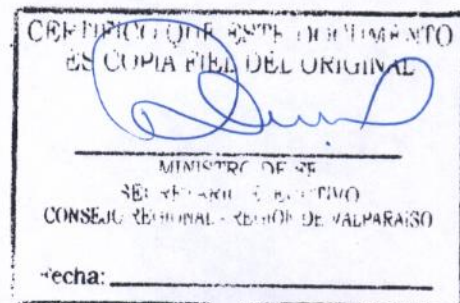 CERTIFICO QUE ESTE DOCUMENTO
ES COPIA FIEL DEL ORIGINAL
MINISTRO DE FE
SECRETARIO EJECUTIVO
CONSEJO REGIONAL - REGIÓN DE VALPARAÍSO
Fecha: